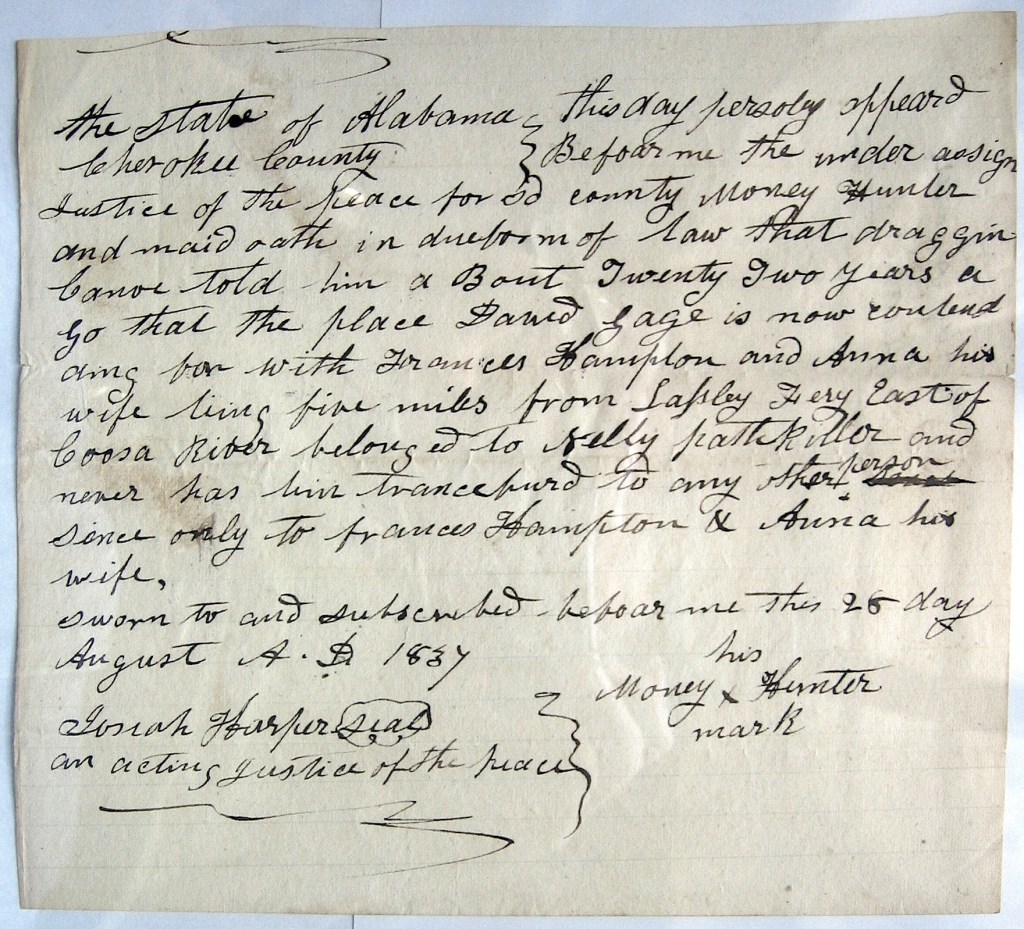 the state of Alabama } this day persoly appeard
Cherokee County } Befoar me the under assign
Justice of the peace for sd county Money Hunter
and maid oath in due form of law that draggin
Canoe told him a Bout Twenty Two years a
go that the place David Gage is now contend
aing for with Frances Hampton and Anna his
wife liing five miles from Lassley Fery East of
Coosa River belonged to Nelly pathkiller and
never has bin trancefurd to any other person
sence only to frances Hampton & Anna his
wife,
sworn to and subscribed befoar me this 28 day
August A. D 1837
his
Money x Hunter
mark
Josiah Harper seal
an acting Justice of the peace